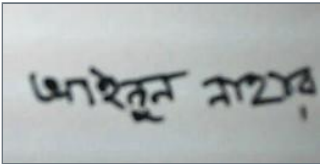 আইনুন নাহার